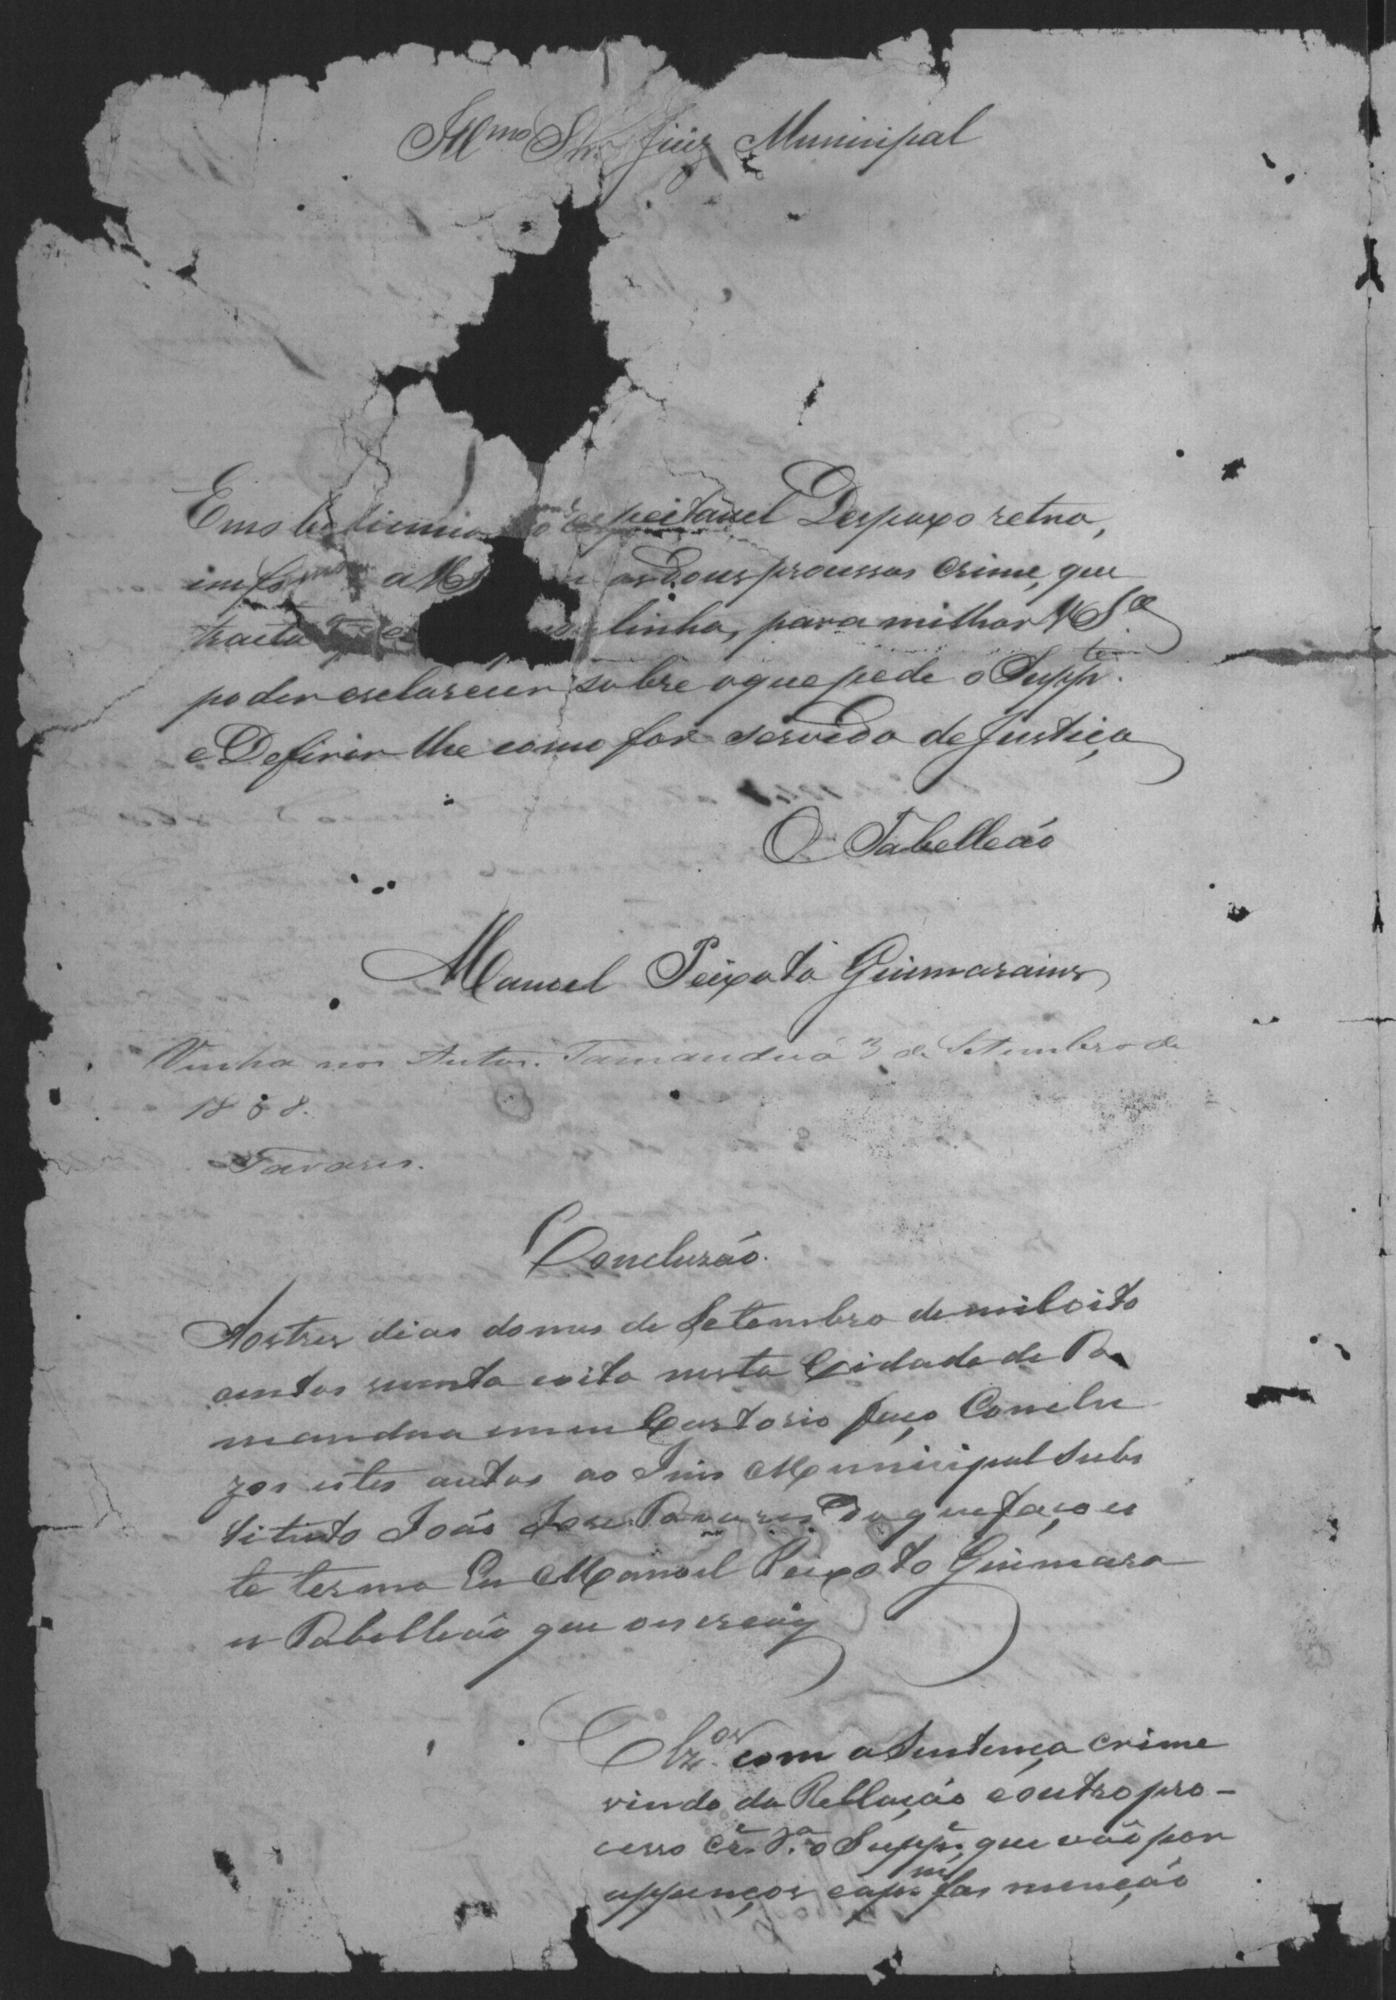 Illmo Snr. Juiz Municipal
Em obediencia ao respeitavel Despaxo retro,
informo a V.S. os dous processos crime, que
tracta linha, para milhor V Sa
poder esclarecer sobre o que pede o Suppte.
e Defirir lhe como for servido de Justiça
O Tabelleão
Manoel Peixoto Guimarains
Venha nos Autos. Tamanduá 3 de Setembro de
1868.
Tavares.
Concluzão.
Aos tres dias do mes de Setembro de mil oito
centos secenta e oito nesta Cidade de Ta
mandua em meu Cartorio faço Conclu
zos estes autos ao Juis Municipal Subs
tituto João Jose Tavares Do que faço es
te termo Eu Manoel Peixoto Guimara
es Tabelleão que o escrevy
Clzos. com a Sentença crime
vindo da Rellação e outro pro-
cesso Cre. Pa. o Suppe. que vão por
appenços e aqm fas menção